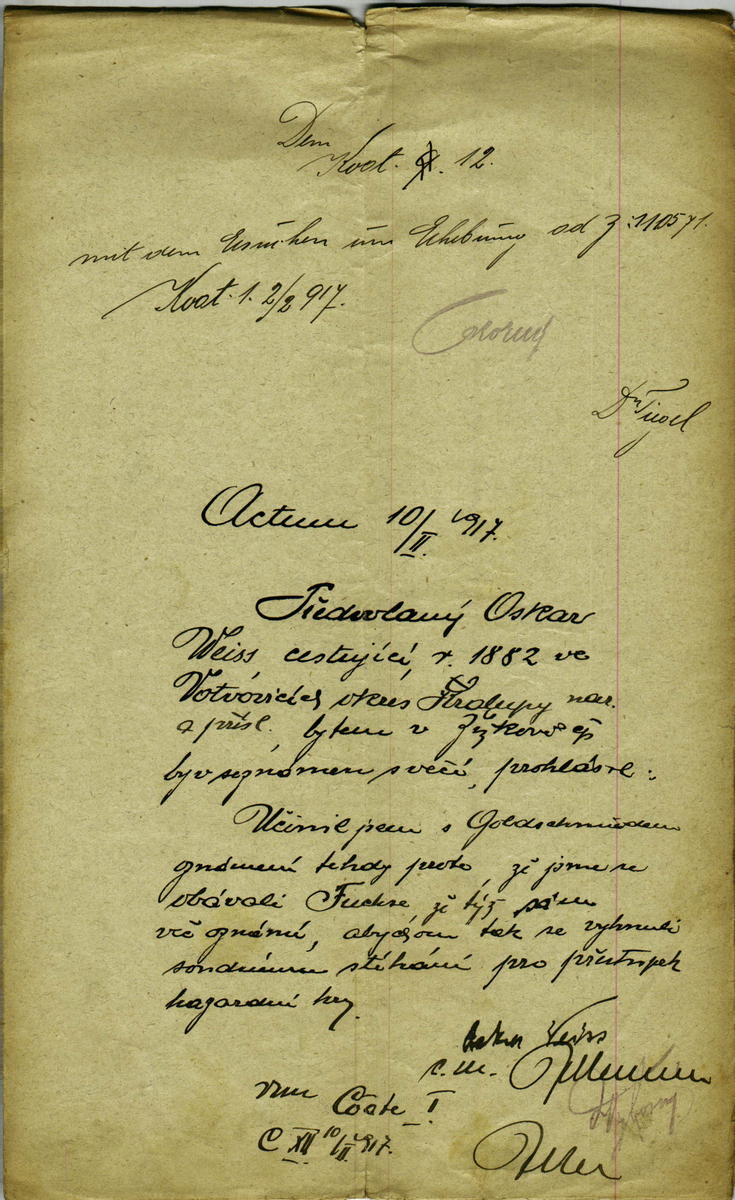 Dem
Koat. 12.
mit dem Ersuchen um Erhebung ad Z 110571.
Koat. 1. 2/2 917.
Dr Tiegel
Actum 10/II. 1917.
Předvolaný Oskar
Weiss cestující, r. 1882 ve
Votvovicích okres Kralupy nar.
a přísl., bytem v Žižkově čp
byv seznámen s věcí, prohlásil:
Učinil jsem s Goldschmiedem
oznámení tehdy proto, že jsme se
obávali Fuchse že týž sám
věc oznámí, abychom tak se vyhnuli
soudnímu stíhání pro přestupek
hazardní hry.
Oskar Weiss
c. m.
vom Coate I
C XII 10/II. 1917.